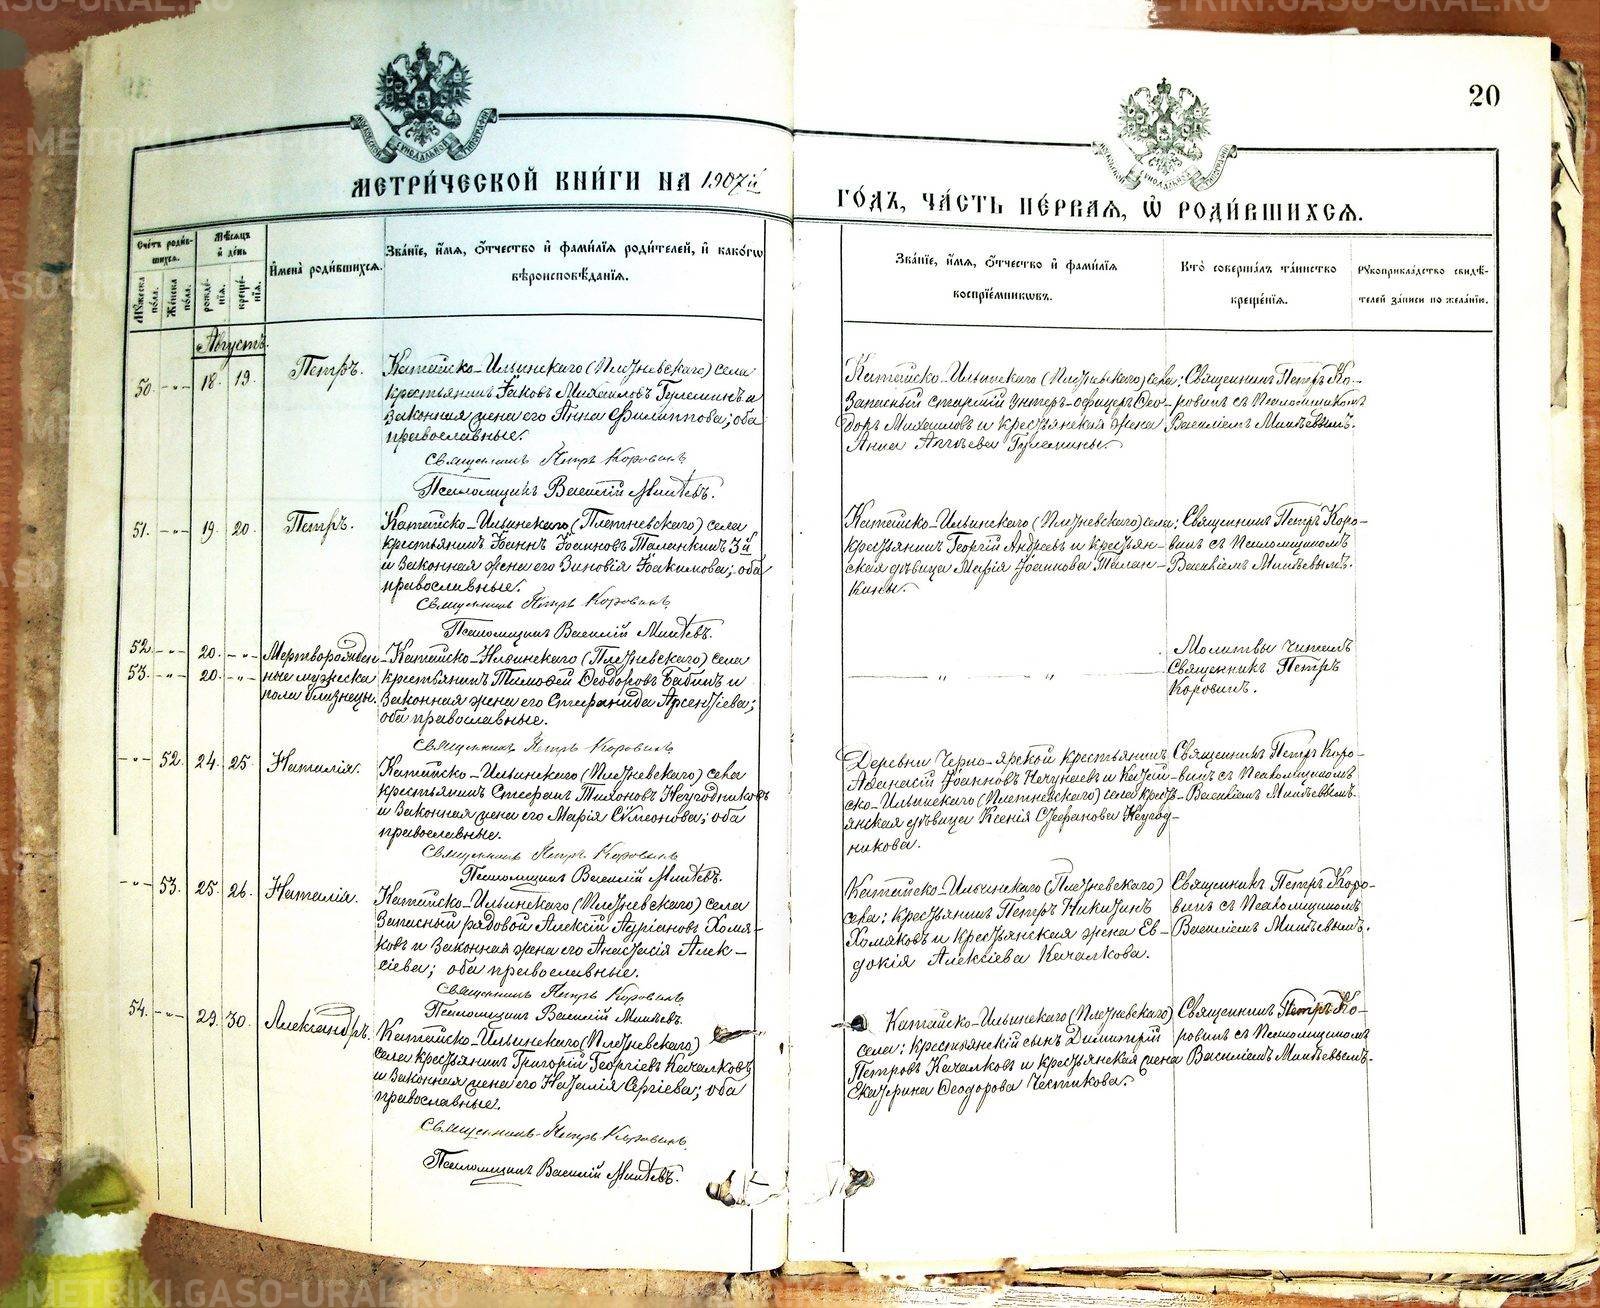 20
МЕТРИ́ЧЕСКОЙ КНИ́ГИ НА 1907й
ГО́ДЪ, ЧА́СТЬ ПЕ́РВАЯ, Ѡ РОДИ́ВШИХСЯ.
Сче́тъ роди́в-
шихся.
Мѹжеска по́ла.
Же́нска по́ла.
Мѣ́сяцъ
и де́нь
рожде́-
нія.
креще́-
нія.
Имена̀ роди́вшихся.
Зва́ніе, и́мя, о́тчество и фами́лія роди́телей, и како́гѡ
вѣроисповѣ́данія.
Зва́ніе, и́мя, о́тчество и фами́лія
воспріе́мникѡвъ.
Кто̀ соверша́лъ та́инство
креще́нія.
Рѹкоприкла́дство свидѣ́-
телей за́писи по жела́нію.
Августъ.
50. -"- 18. 19.
Петръ.
Катайско-Ильинскаго (Плетневскаго) села
крестьянинъ Іаковъ Михаиловъ Гулеминъ и
законная жена его Анна Филиппова; оба
православные.
Священникъ Петръ Коровинъ
Псаломщикъ Василій
Катайско-Ильинскаго (Плетневскаго) села:
Запасный старшій унтеръ-офицеръ Ѳео-
доръ Михаиловъ и крестьянская жена
Анна Гулемины.
Священникъ Петръ Ко-
ровинъ съ Псаломщикомъ
Василіемъ
51. -"- 19. 20.
Петръ.
Катайско-Ильинскаго (Плетневскаго) села
крестьянинъ Іоаннъ Іоанновъ Таланкинъ 3й
и законная жена его Зиновія Іоакимова; оба
православные.
Священникъ Петръ Коровинъ
Псаломщикъ Василій
Катайско-Ильинскаго (Плетневскаго) села:
крестьянинъ Георгій Андреевъ и крестьян-
ская дѣвица Марія Іоаннова Талан-
кины.
Священникъ Петръ Коро-
винъ съ Псаломщикомъ
Василіемъ
52. -"- 20. -"-
53. -"- 20. -"-
Мертворожден-
ные мужеска
пола близнецы.
Катайско-Ильинскаго (Плетневскаго) села
крестьянинъ Тимофей Ѳеодоровъ Бабинъ и
законная жена его Стефанида Арсентіева;
оба православные.
Священникъ Петръ Коровинъ
" "
Молитвы читалъ
Священникъ Петръ
Коровинъ.
-"- 52. 24. 25.
Наталія.
Катайско-Ильинскаго (Плетневскаго) села
крестьянинъ Стефанъ Тихоновъ Неугодниковъ
и законная жена его Марія Сѵмеонова; оба
православные.
Священникъ Петръ Коровинъ
Псаломщикъ Василій
Деревни Черно-ярской крестьянинъ
Аѳанасій Іоанновъ Нечунаевъ и Катай-
ско-Ильинскаго (Плетневскаго) села кресть-
янская дѣвица Ксенія Стефанова Неугод-
никова.
Священникъ Петръ Коро-
винъ съ Псаломщикомъ
Василіемъ
-"- 53. 25. 26.
Наталія.
Катайско-Ильинскаго (Плетневскаго) села
Запасный рядовой Алексій Адріановъ Хомя-
ковъ и законная жена его Анастасія Алек-
сіева; оба православные.
Священникъ Петръ Коровинъ
Псаломщикъ Василій
Катайско-Ильинскаго (Плетневскаго)
села: крестьянинъ Петръ Никитинъ
Хомяковъ и крестьянская жена Ев-
докія Алексіева Качалкова.
Священникъ Петръ Коро-
винъ съ Псаломщикомъ
Василіемъ
54. -"- 29. 30.
Александръ.
Катайско-Ильинскаго (Плетневскаго)
села крестьянинъ Григорій Георгіевъ Качалковъ
и законная жена его Наталія Сергіева; оба
православные.
Священникъ Петръ Коровинъ
Псаломщикъ Василій
Катайско-Ильинскаго (Плетневскаго)
села: крестьянскій сынъ Димитрій
Петровъ Качалковъ и крестьянская жена
Екатерина Ѳеодорова Честикова.
Священникъ Петръ Ко-
ровинъ съ Псаломщикомъ
Василіемъ
METRIKI.GASO-URAL.RU